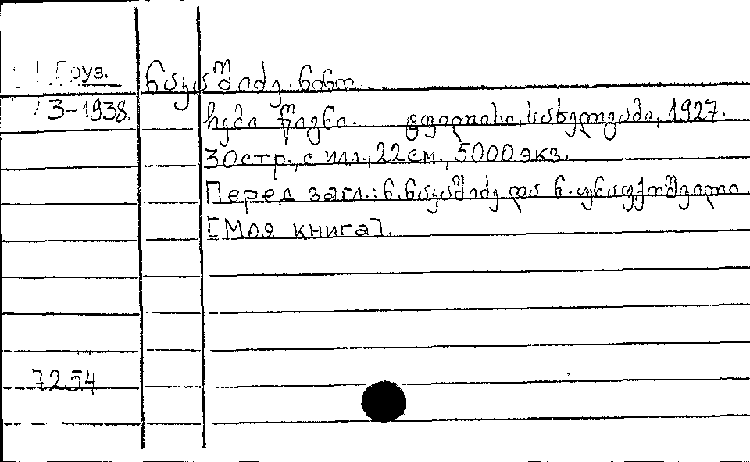 Груз.
3-1938.
ნაკაშიძე ნინო
ჩემი წიგნი. ტფილისი, სახელგამი, 1927.
30 стр., с илл., 22 см., 5000 экз.
Перед загл.: ნ. ნაკაშიძე და ნ.
[Моя книга].
7254